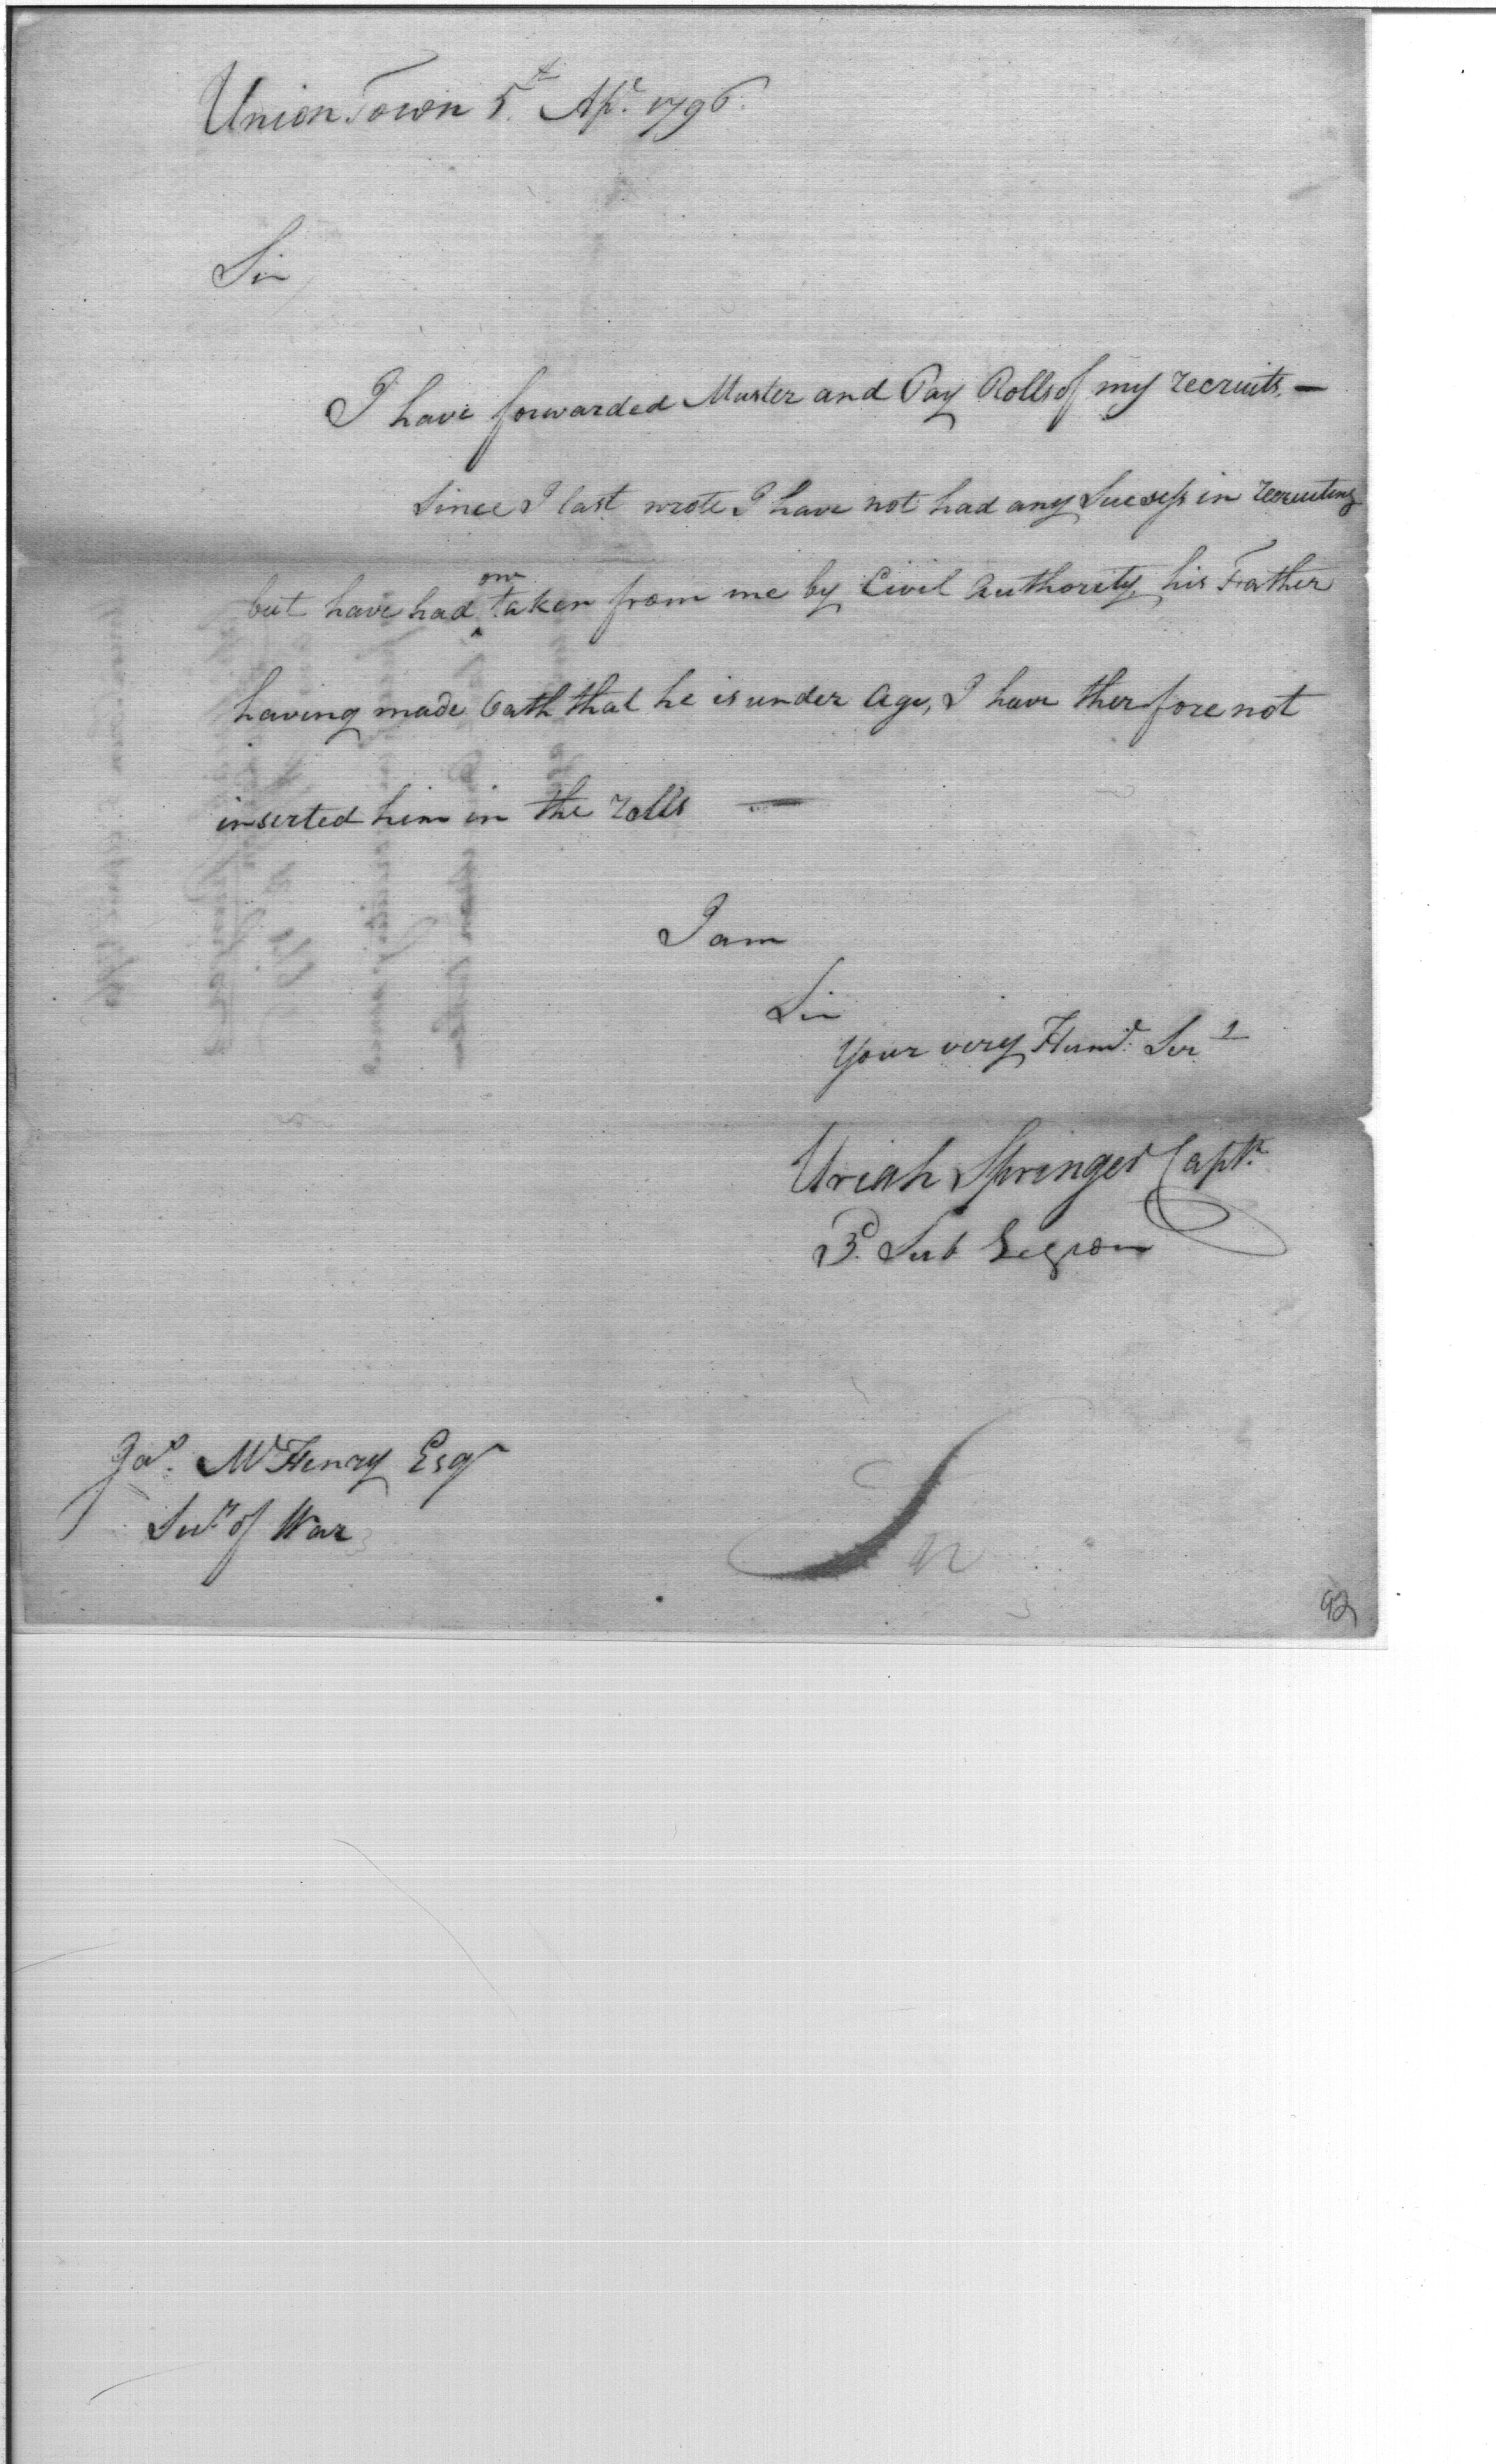 Union Town 5th Apl. 1796.
Sir
I have forwarded Muster and Pay Rolls of my recruits, —
Since I last wrote I have not had any Success in recruiting
but have had one taken from me by Civil Authority, his Father
having made Oath that he is under Age, I have therefore not
inserted him in the rolls —
I am
Sir
Your very Humle. Sert
Uriah Springer Captn.
3d. Sub Legion
Jas. McHenry Esqr
Secy. of War
92